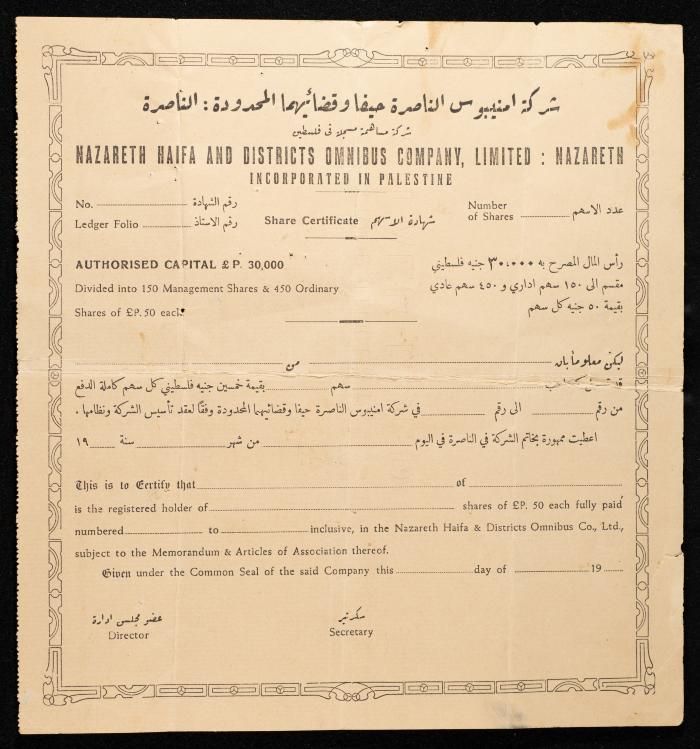 شركة امنيبوس الناصرة حيفا وقضائيهما المحدودة : الناصرة
شركة مساهمة مسجلة في فلسطين
NAZARETH HAIFA AND DISTRICTS OMNIBUS COMPANY, LIMITED : NAZARETH
INCORPORATED IN PALESTINE
No. رقم الشهادة
Ledger Folio رقم الاستاذ
Share Certificate شهادة الاسهم
Number of Shares عدد الاسهم
AUTHORISED CAPITAL £P. 30,000
Divided into 150 Management Shares & 450 Ordinary
Shares of £P. 50 each.
رأس المال المصرح به ٣٠,٠٠٠ جنيه فلسطيني
مقسم الى ١٥٠ سهم اداري و ٤٥٠ سهم عادي
بقيمة ٥٠ جنيه كل سهم
ليكن معلوماً بان من
سهم بقيمة خمسين جنيه فلسطيني كل سهم كاملة الدفع
من رقم الى رقم في شركة امنيبوس الناصرة حيفا وقضائيهما المحدودة وفقاً لعقد تأسيس الشركة ونظامها .
اعطيت ممهورة بخاتم الشركة في الناصرة في اليوم من شهر سنة ١٩
This is to Certify that of
is the registered holder of shares of £P. 50 each fully paid
numbered to inclusive, in the Nazareth Haifa & Districts Omnibus Co., Ltd.,
subject to the Memorandum & Articles of Association thereof.
Given under the Common Seal of the said Company this day of 19
عضو مجلس ادارة
Director
سكرتير
Secretary